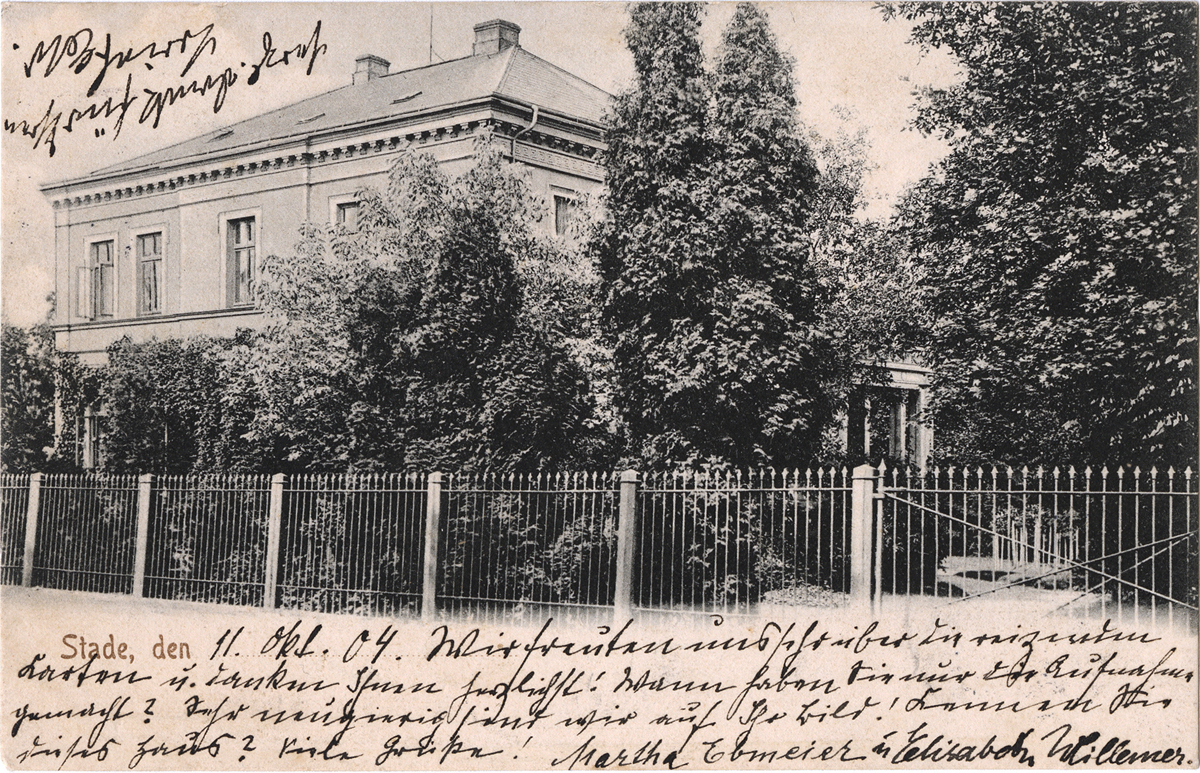 Stade, den 11. Okt. 04. Wir freuten uns sehr über die reizenden
Karten u. danken Ihnen herzlichst! Wann haben Sie nur die Aufnahme
gemacht? Sehr neugierig sind wir auf Ihr Bild! Kennen Sie
dieses Haus? Viele Grüße! Martha Ebmeier u. Elisabeth Willemer.